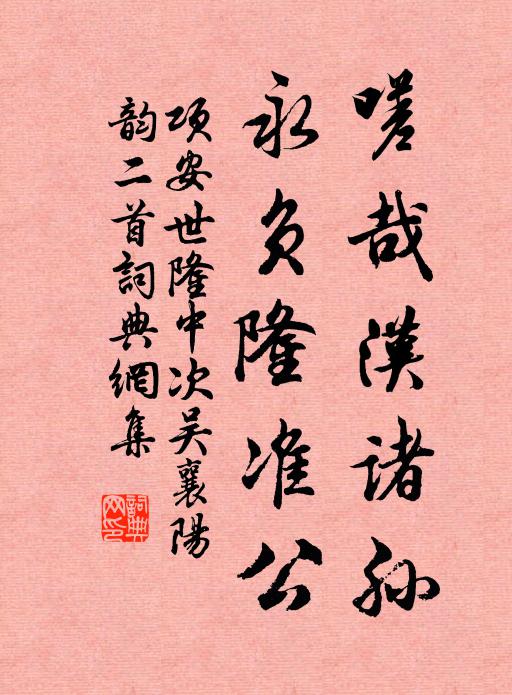 嗟哉漢诸孙
永负隆准公
項安世隆中次吴襄陽
韵二首詞典網集
詞典
网印